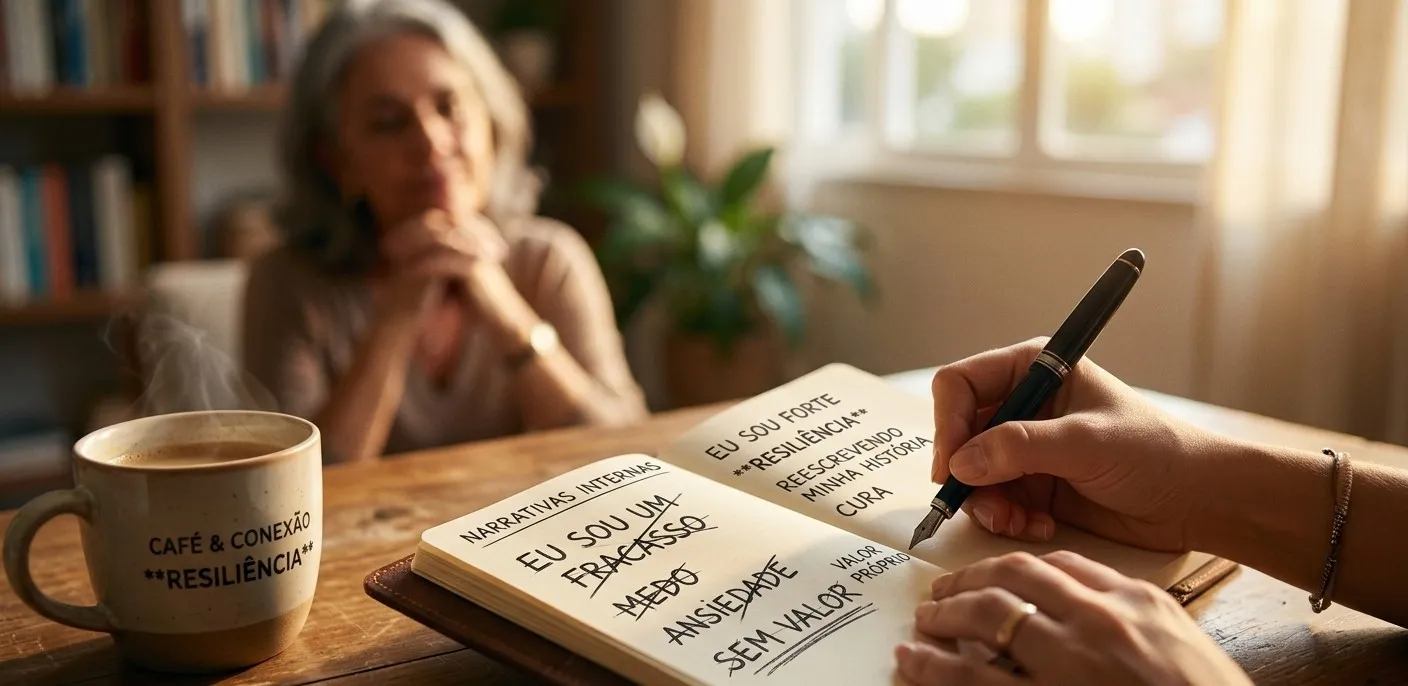 CAFÉ & CONEXÃO
**RESILIÊNCIA**
NARRATIVAS INTERNAS
EU SOU UM
FRACASSO
MEDO
ANSIEDADE
SEM VALOR
VALOR
PRÓPRIO
EU SOU FORTE
**RESILIÊNCIA**
REESCREVENDO
MINHA HISTÓRIA
CURA